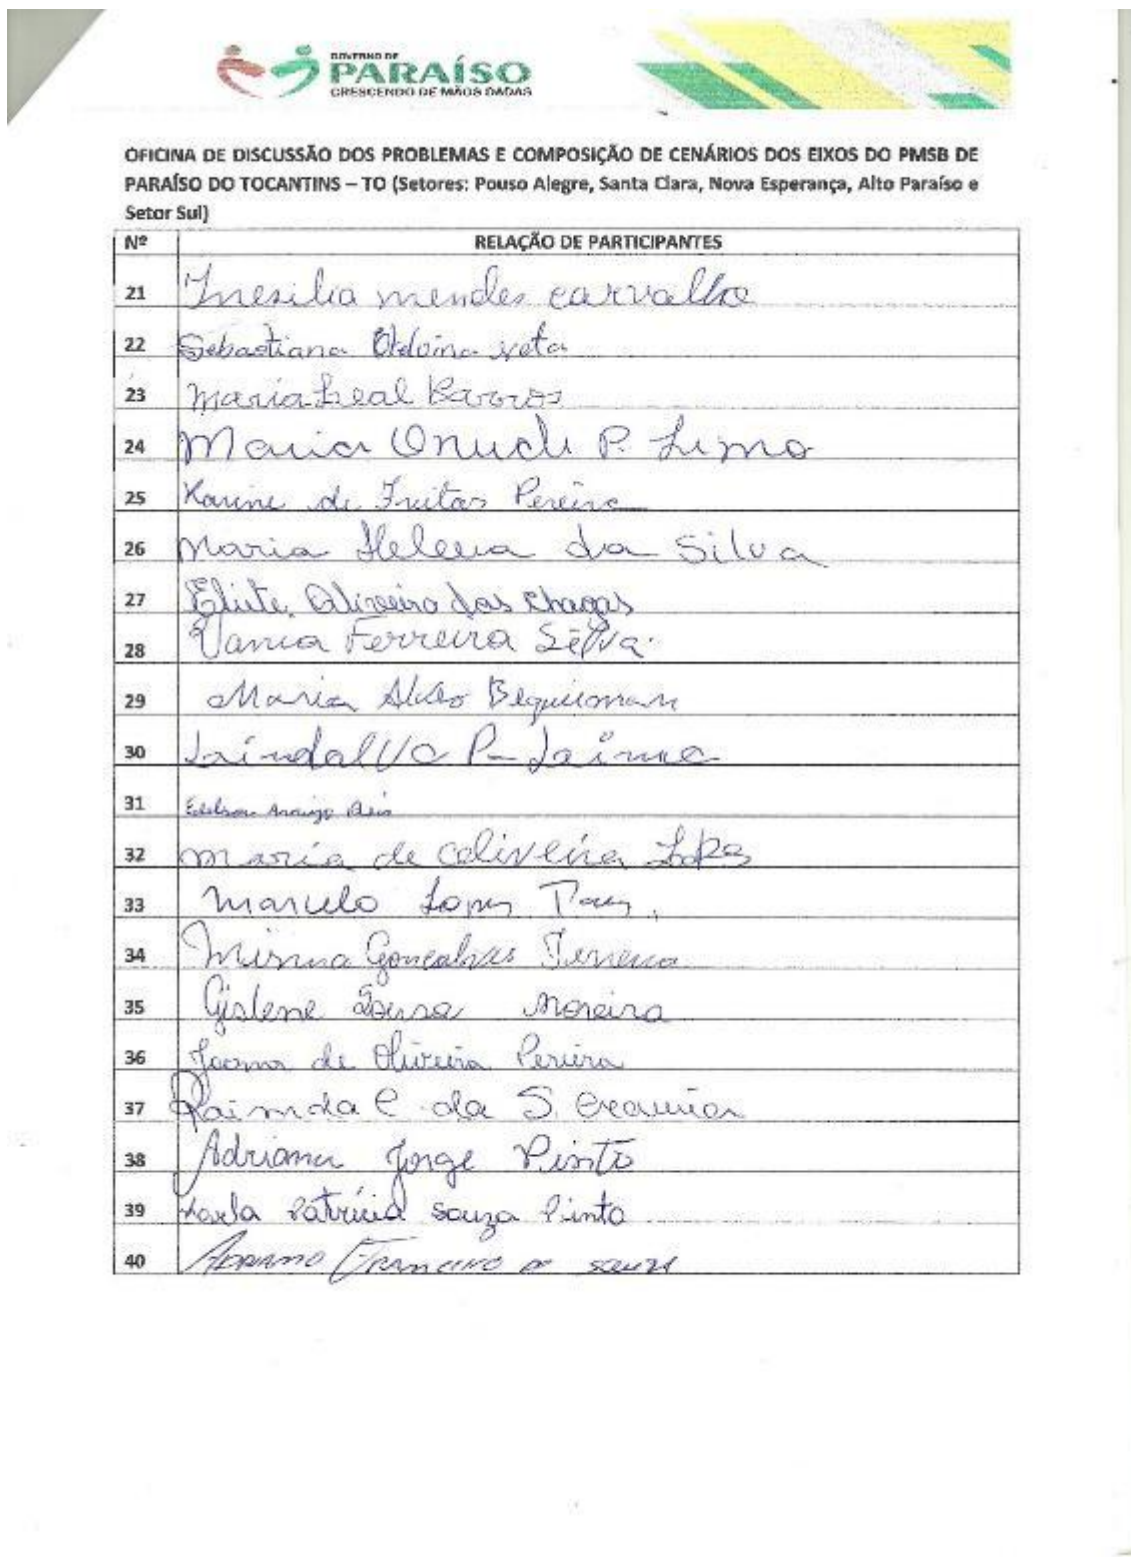 GOVERNO DE
PARAÍSO
CRESCENDO DE MÃOS DADAS
OFICINA DE DISCUSSÃO DOS PROBLEMAS E COMPOSIÇÃO DE CENÁRIOS DOS EIXOS DO PMSB DE
PARAÍSO DO TOCANTINS – TO (Setores: Pouso Alegre, Santa Clara, Nova Esperança, Alto Paraíso e
Setor Sul)
Nº RELAÇÃO DE PARTICIPANTES
21 Inesilia mendes carvalho
22 Sebastiana neta
23 maria Leal Barros
24 Maria P. Lima
25 Karine de Freitas Pereira
26 Maria Helena da Silva
27 Oliveira das chagas
28 Vania Ferreira Silva
29 Maria Alves
30 P
31 Edilson Araujo Reis
32 maria de oliveira Lopes
33 Marcelo Lopes
34 Gonçalves Ferreira
35 Gislene Sousa Moreira
36 Joana de Oliveira Pereira
37 da S.
38 Adriana Jorge Pinto
39 Karla Patrícia Souza Pinto
40 Adriano Francisco